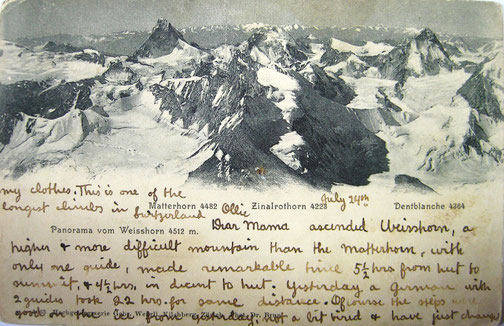 Matterhorn 4482 Zinalrothorn 4223 Dentblanche 4364
Panorama vom Weisshorn 4512 m.
my clothes. This is one of the
longest climbs in Switzerland
Ollie
July 24th
Dear Mama ascended Weisshorn, a
higher & more difficult mountain than the Matterhorn, with
only one guide, made remarkable time 5½ hrs from hut to
summit, & 4½ hrs, in decent to hut. Yesterday a German with
2 guides took 22 hrs. for same distance. Of course the steps were
good from yesterday. Not a bit tired & have just changed
Gebr. Wehrli, Kilchberg, Zürich